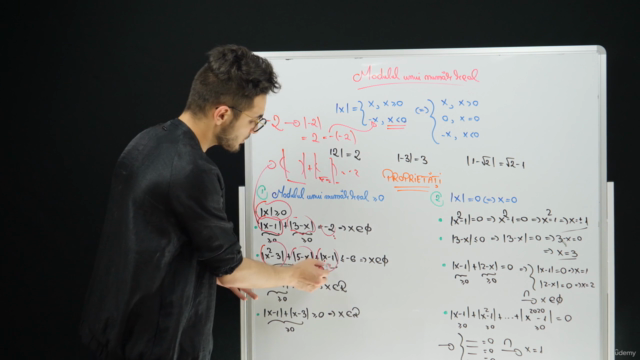 Modulul unui număr real
|x| = { x, x≥0
-x, x<0 (=) { x, x>0
0, x=0
-x, x<0
-2 → |-2|
= 2 = -(-2)
|2|=2
|-3|=3
|1-√2|=√2-1
PROPRIETĂȚI
1 Modulul unui număr real ≥0
|x|≥0
|x-1|+|3-x|=-2 => x∈ϕ
≥0 ≥0
|x²-3|+|5-x|+|x-1|≤-6 => x∈ϕ
≥0
x∈R
|x-1|+|x-3|≥0 => x∈R
≥0
2 |x|=0 (=) x=0
|x²-1|=0 => x²-1=0 => x²=1 => x=±1
|3-x|≤0 => |3-x|=0 => 3-x=0
=> x=3
|x-1|+|2-x|=0 => { |x-1|=0 => x=1
|2-x|=0 => x=2
≥0 ≥0
∩ x∈ϕ
|x-1|+|x²-1|+...+|x²⁰²⁰-1|=0
≥0 ≥0 ≥0
=0
=0 ∩ x=1
=0
ûdemy